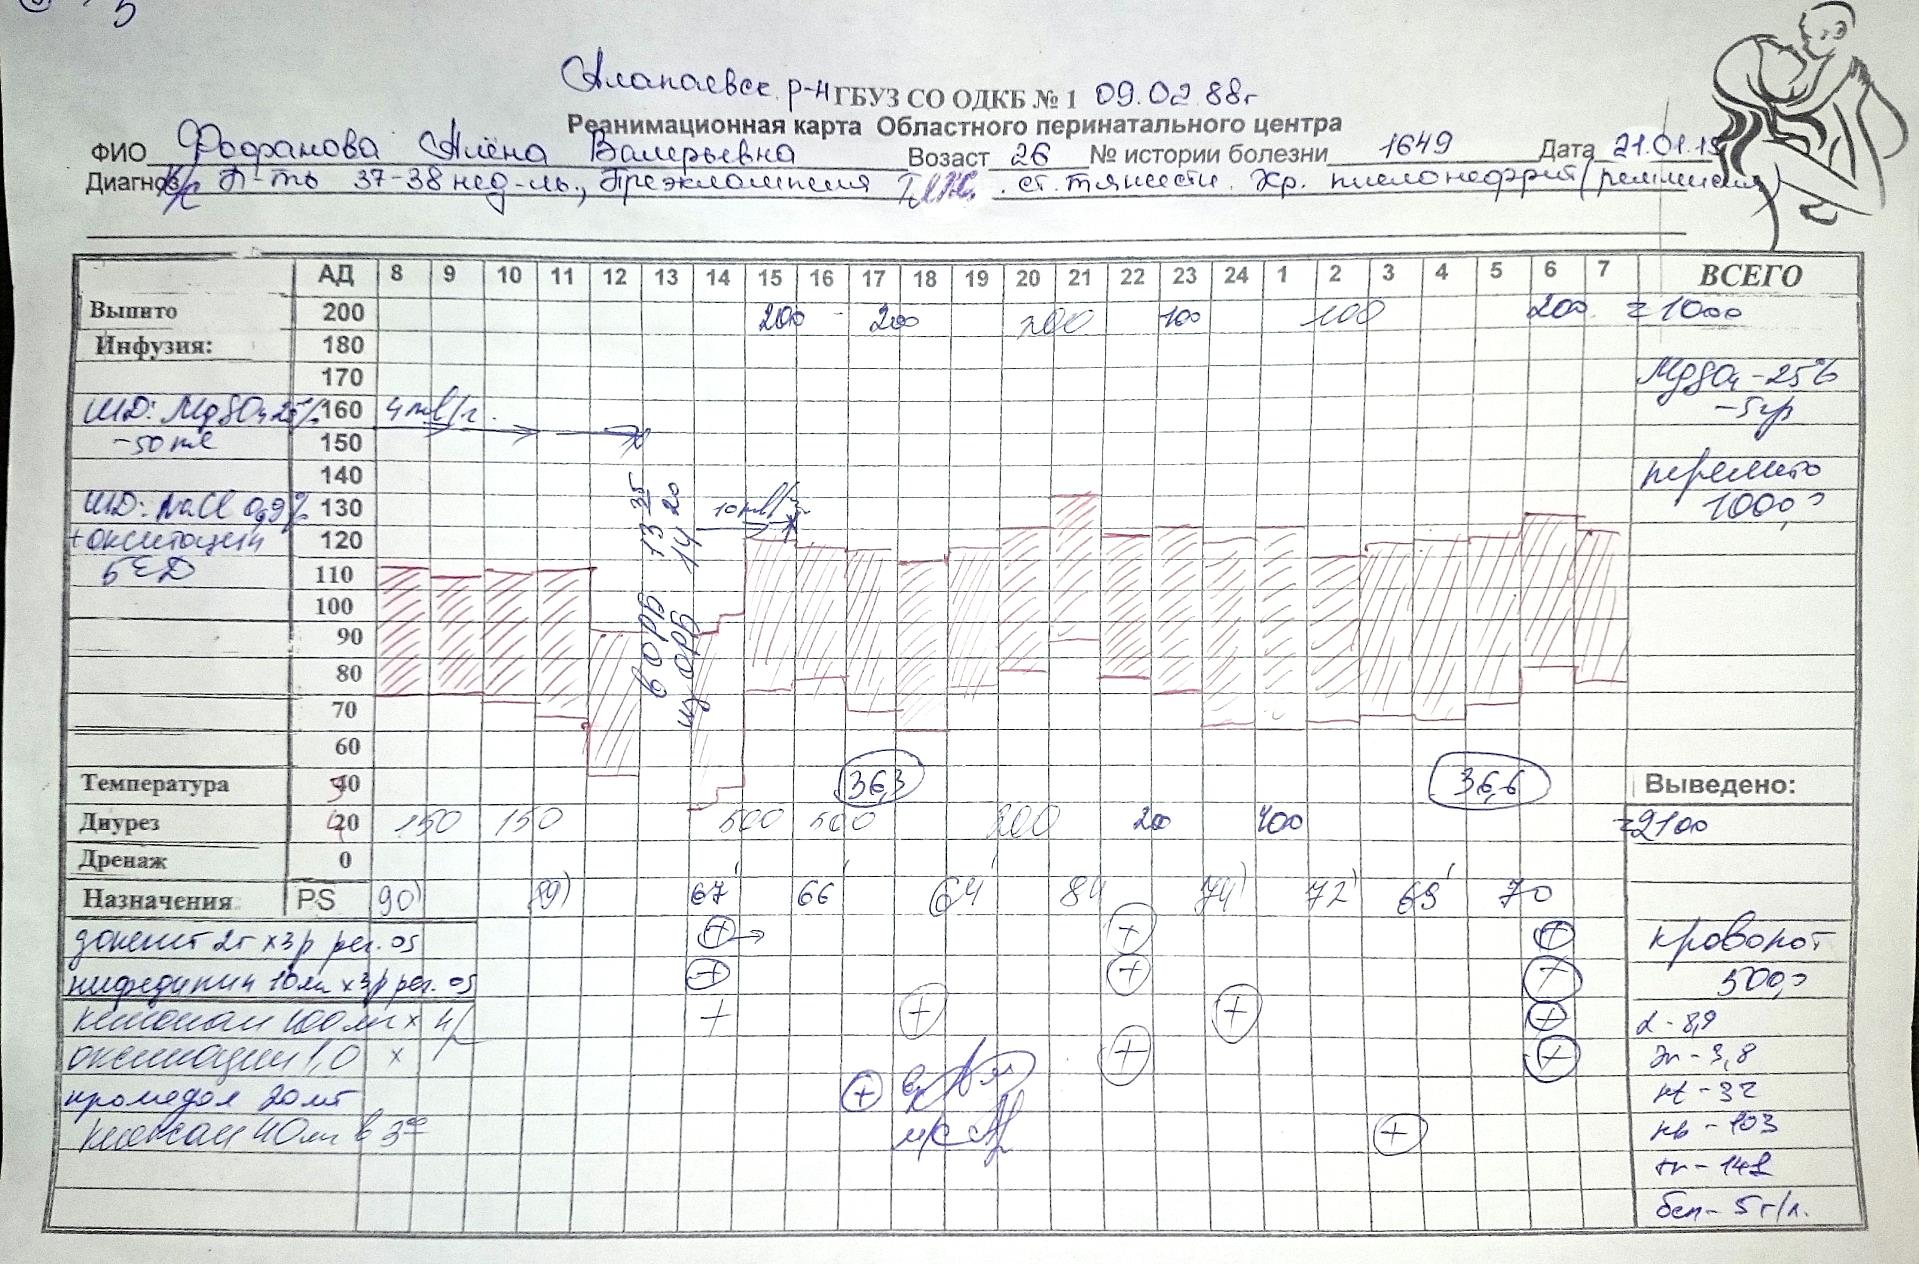 5
Алапаевск. р-н ГБУЗ СО ОДКБ № 1 09.02.88г
Реанимационная карта Областного перинатального центра
ФИО Фофанова Алёна Валерьевна Возаст 26 № истории болезни 1649 Дата 21.01.15
Диагноз Б-ть 37-38 нед-ль., Преэклампсия тяж. ст. тяжести. Хр. пиелонефрит (ремиссия)
АД 8 9 10 11 12 13 14 15 16 17 18 19 20 21 22 23 24 1 2 3 4 5 6 7 ВСЕГО
Выпито 200 200 - 200 200 100 100 200 = 1000
Инфузия: 180
170 MgSO4 - 25%
ШД: MgSO4 25% 160 4 ml/г. - 5гр
- 50 ml 150
140 перелито
ШД: NaCl 0,9% 130 10 ml/ 1000,0
+ окситоцин 120
5 ЕД 110
в ОРБ 13 35
из ОРБ 14 20
100
90
80
70
60
Температура 40 36,3 36,6 Выведено:
Диурез 20 150 150 500 500 200 200 400 = 2100
Дренаж 0
Назначения PS 90' 89' 67' 66' 64' 84 74' 72' 69' 70
допегит 2т х3р per. os + + + кровопот
нифедипин 10мг х3р per. os + + + 500,0
кетонал 100мг х 4р + + + + L - 8,9
окситоцин 1,0 х + + Эр - 3,8
промедол 20мг + Ht - 32
клексан 40мг в 3 00 м/с + Hb - 103
tr - 142
бел - 5г/л.